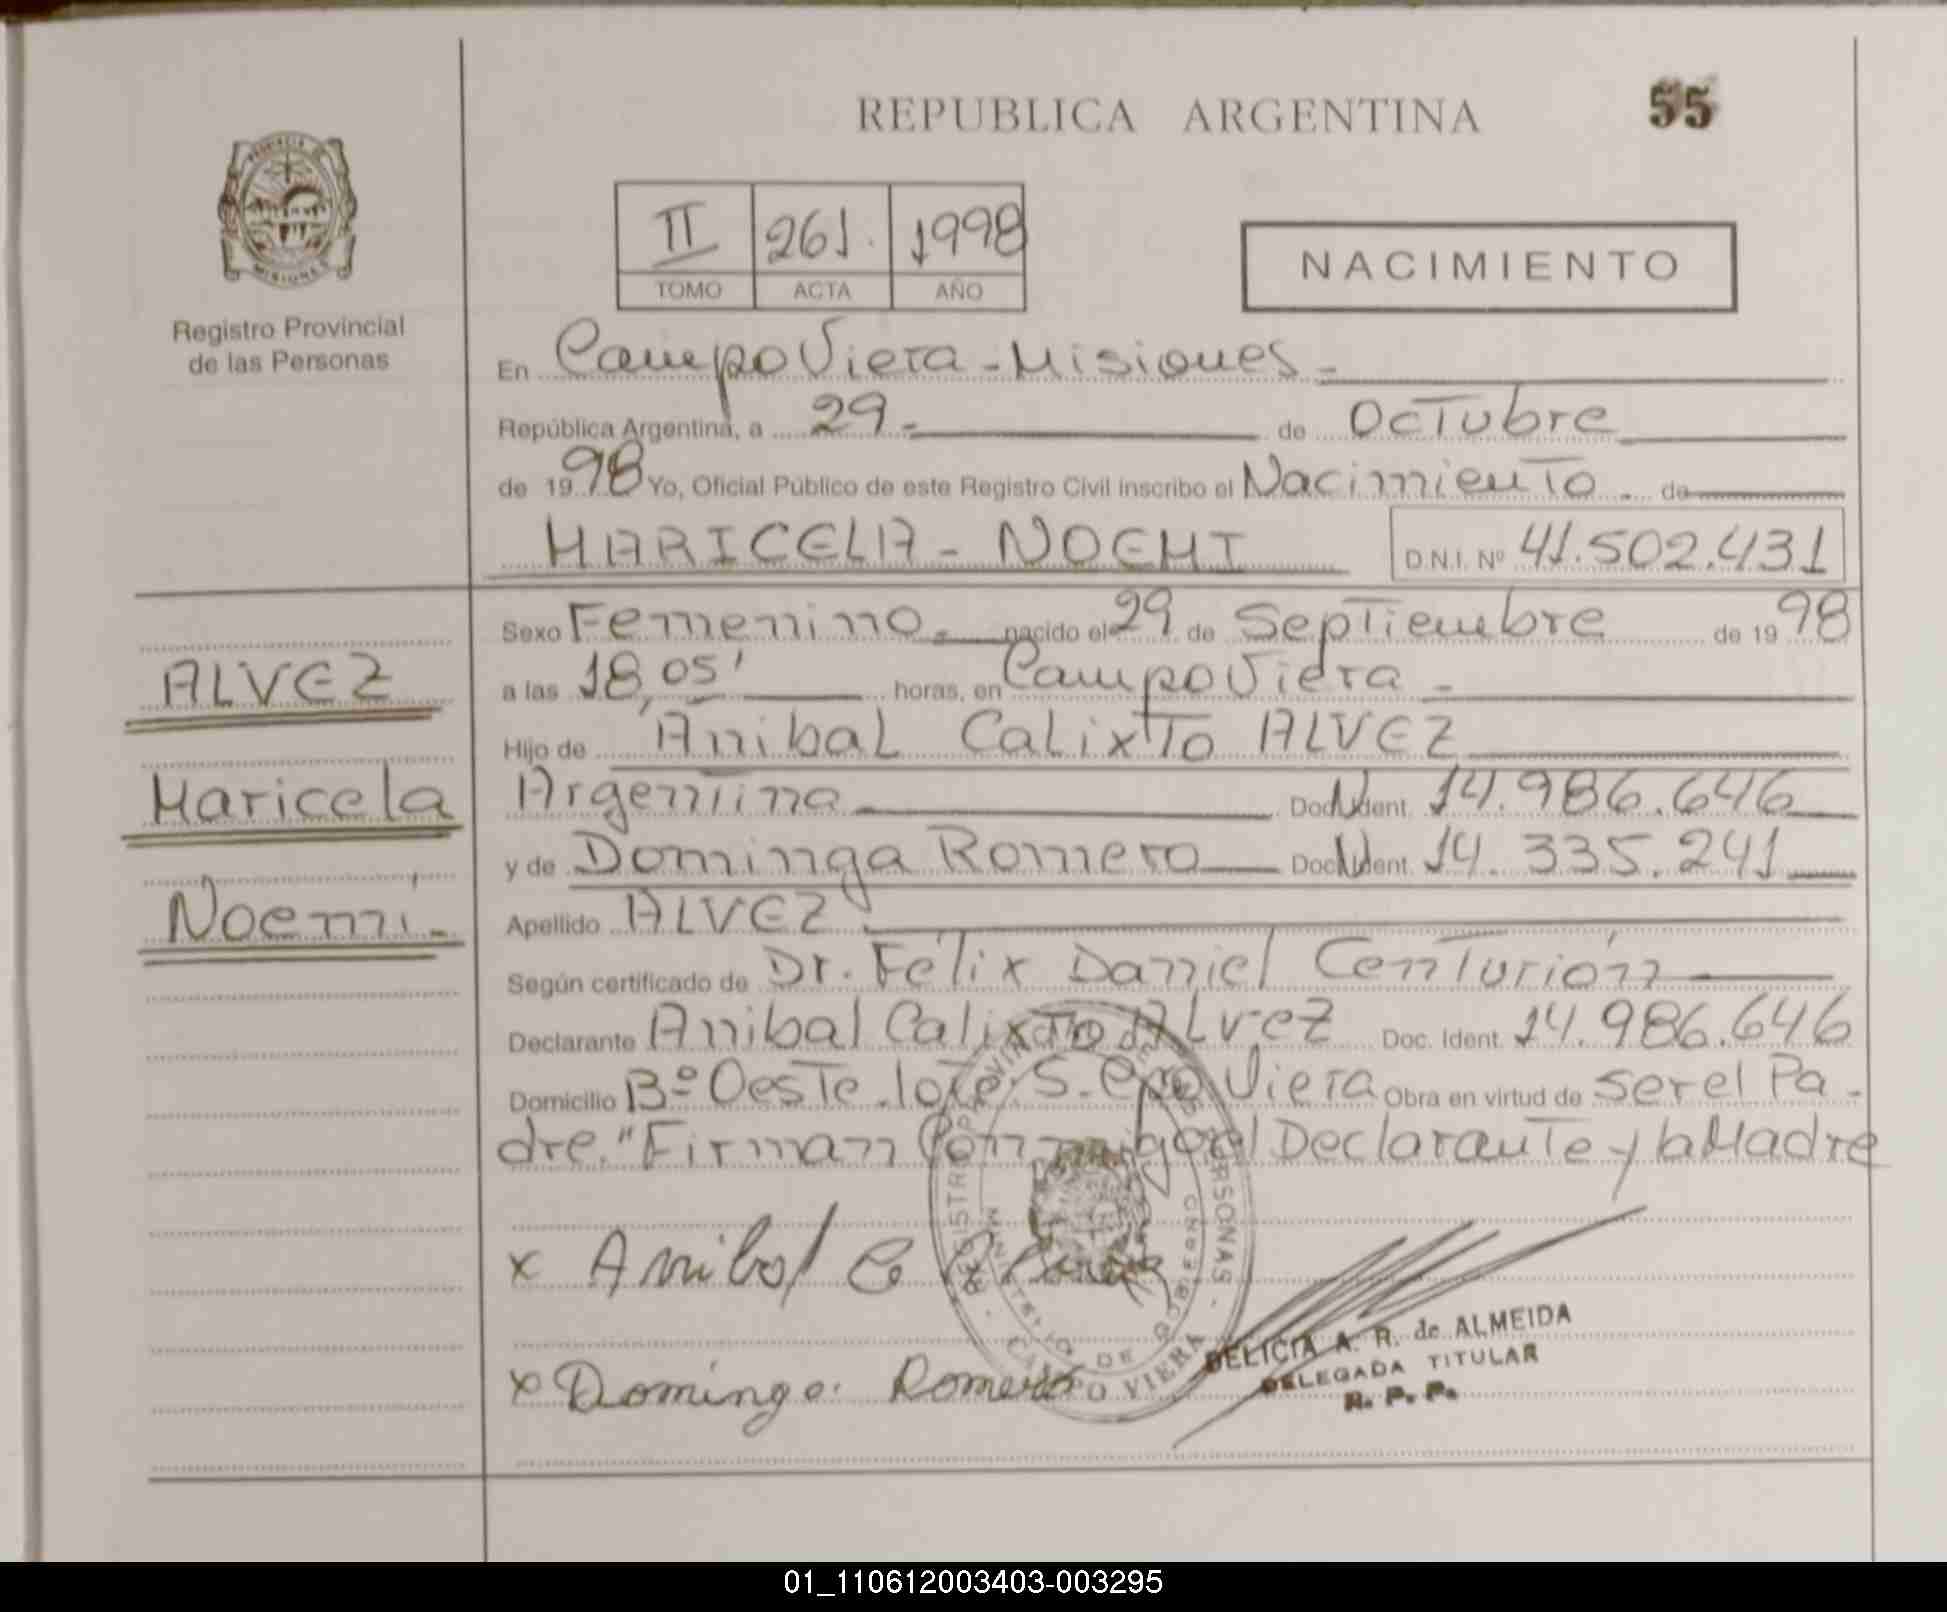 REPUBLICA ARGENTINA
55
PROVINCIA DE
MISIONES
Registro Provincial
de las Personas
II 261. 1998
TOMO ACTA AÑO
NACIMIENTO
En Campo Viera - Misiones -
República Argentina, a 29 - de Octubre
de 1998 Yo, Oficial Público de este Registro Civil inscribo el Nacimiento - de
MARICELA - NOEMI D.N.I. Nº 41.502.431
Sexo Femenino - nacido el 29 de Septiembre de 1998
a las 18,05' horas, en Campo Viera -
Hijo de Anibal Calixto ALVEZ
Argentina Doc. Ident. 14.986.646
y de Dominga Romero Doc. Ident. 14.335.241
Apellido ALVEZ
Según certificado de Dr. Félix Daniel Centurión
Declarante Anibal Calixto Alvez Doc. Ident. 14.986.646
Domicilio Bº Oeste. lote. S. Cpo Viera Obra en virtud de ser el Pa-
dre. "Firman Conmigo el Declarante y la Madre
ALVEZ
Maricela
Noemí -
x Anibal C
x Dominga Romero
REGISTRO PROVINCIAL DE LAS PERSONAS
MINISTERIO DE GOBIERNO
CAMPO VIERA
DELICIA A. R. de ALMEIDA
DELEGADA TITULAR
R. P. P.
01_110612003403-003295